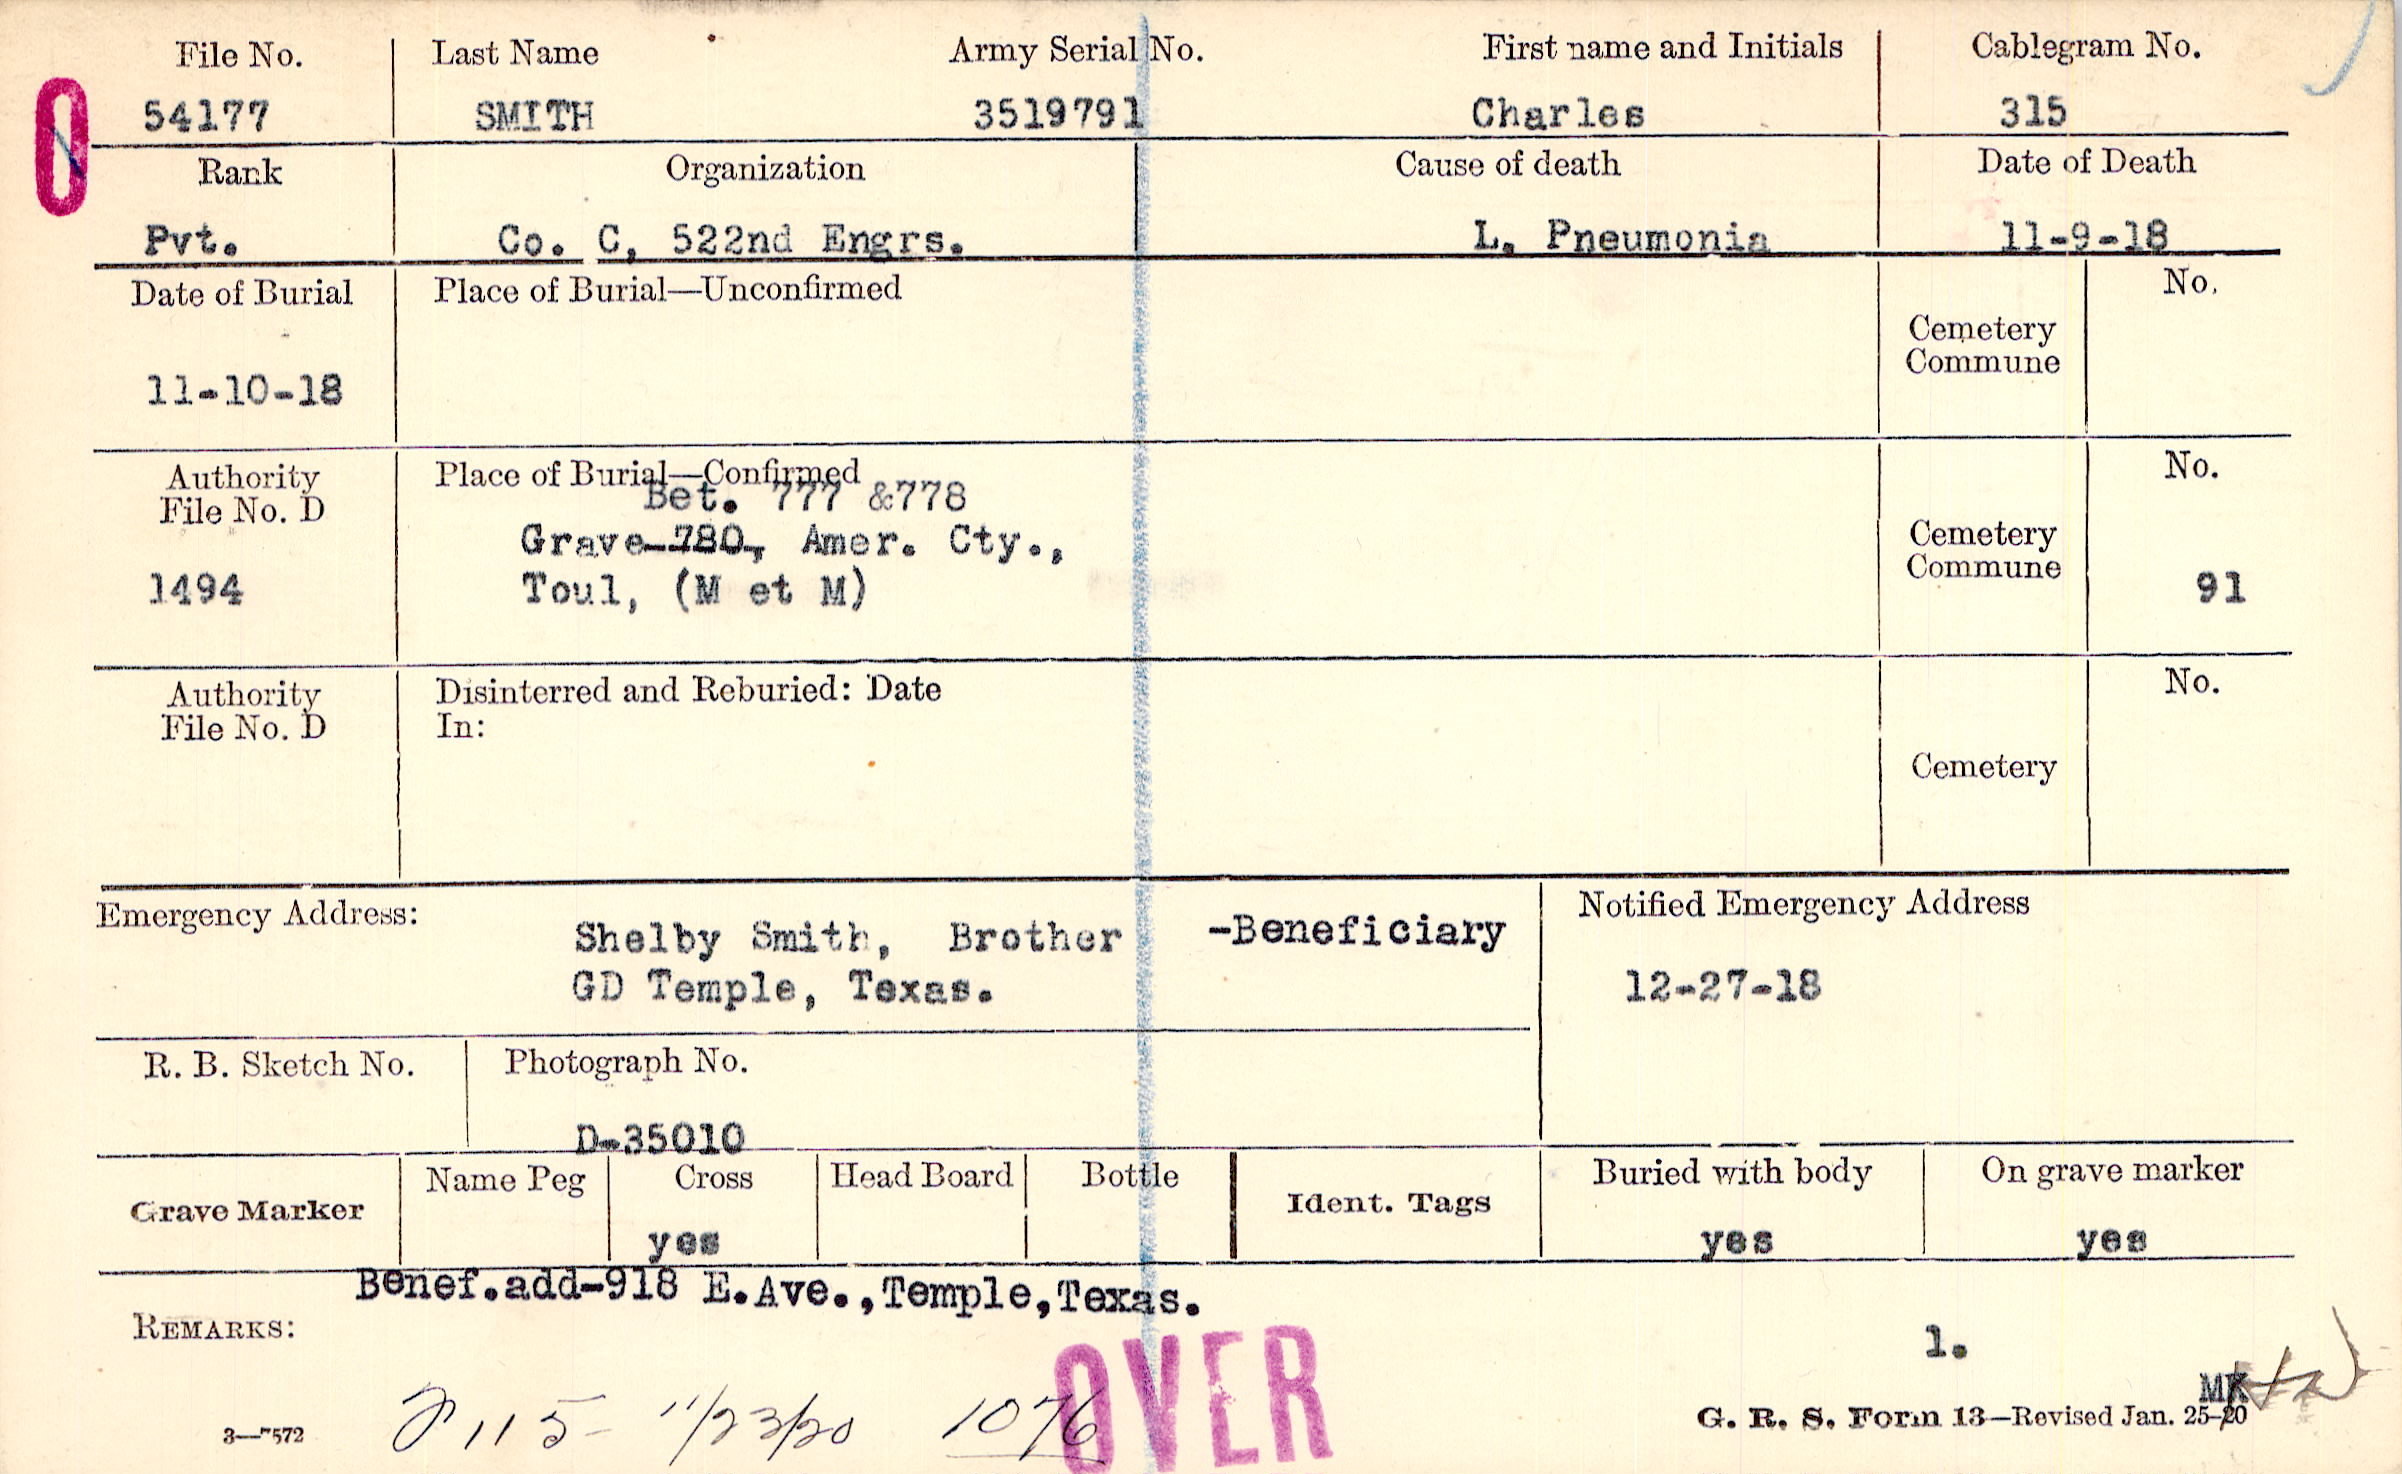 File No. Last Name Army Serial No. First name and Initials Cablegram No.
0 54177 SMITH 3519791 Charles 315
Rank Organization Cause of death Date of Death
Pvt. Co. C, 522nd Engrs. L. Pneumonia 11-9-18
Date of Burial Place of Burial—Unconfirmed No.
Cemetery
Commune
11-10-18
Authority Place of Burial—Confirmed No.
File No. D Bet. 777 &778
Grave 780, Amer. Cty., Cemetery
1494 Toul, (M et M) Commune 91
Authority Disinterred and Reburied: Date No.
File No. D In:
Cemetery
Emergency Address: Notified Emergency Address
Shelby Smith, Brother -Beneficiary
GD Temple, Texas. 12-27-18
R. B. Sketch No. Photograph No.
D-35010
Grave Marker Name Peg Cross Head Board Bottle Ident. Tags Buried with body On grave marker
yes yes yes
Benef.add-918 E.Ave.,Temple,Texas.
REMARKS: 1.
OVER
115 11/23/20 1076
MK
3—7572 G. R. S. Form 13—Revised Jan. 25-20